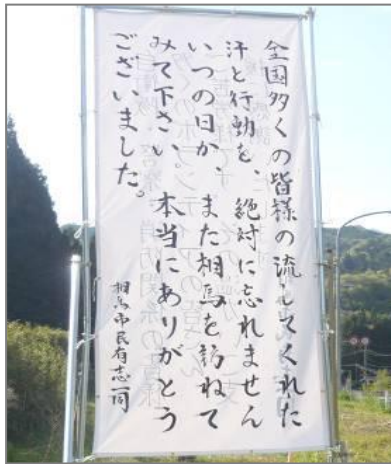 全国多くの皆様の流してくれた
汗と行動を、絶対に忘れません
いつの日か、また相馬を訪ねて
みて下さい 本当にありがとう
ございました。
相馬市民有志一同